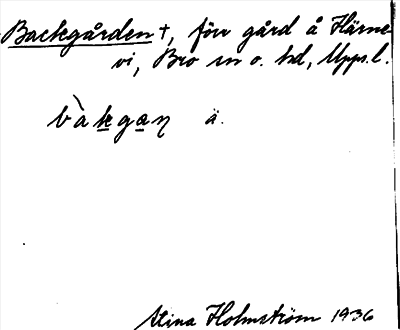 Backgården †, förr gård å Härne-
vi, Bro sn o. hd, Upps.l.
bàkgaŋ ä.
Stina Holmström 1936